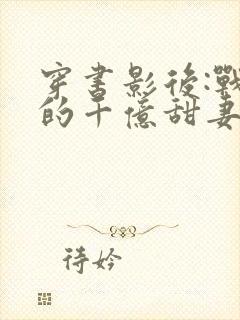 穿書影後:戰
的千億甜妻
待妗